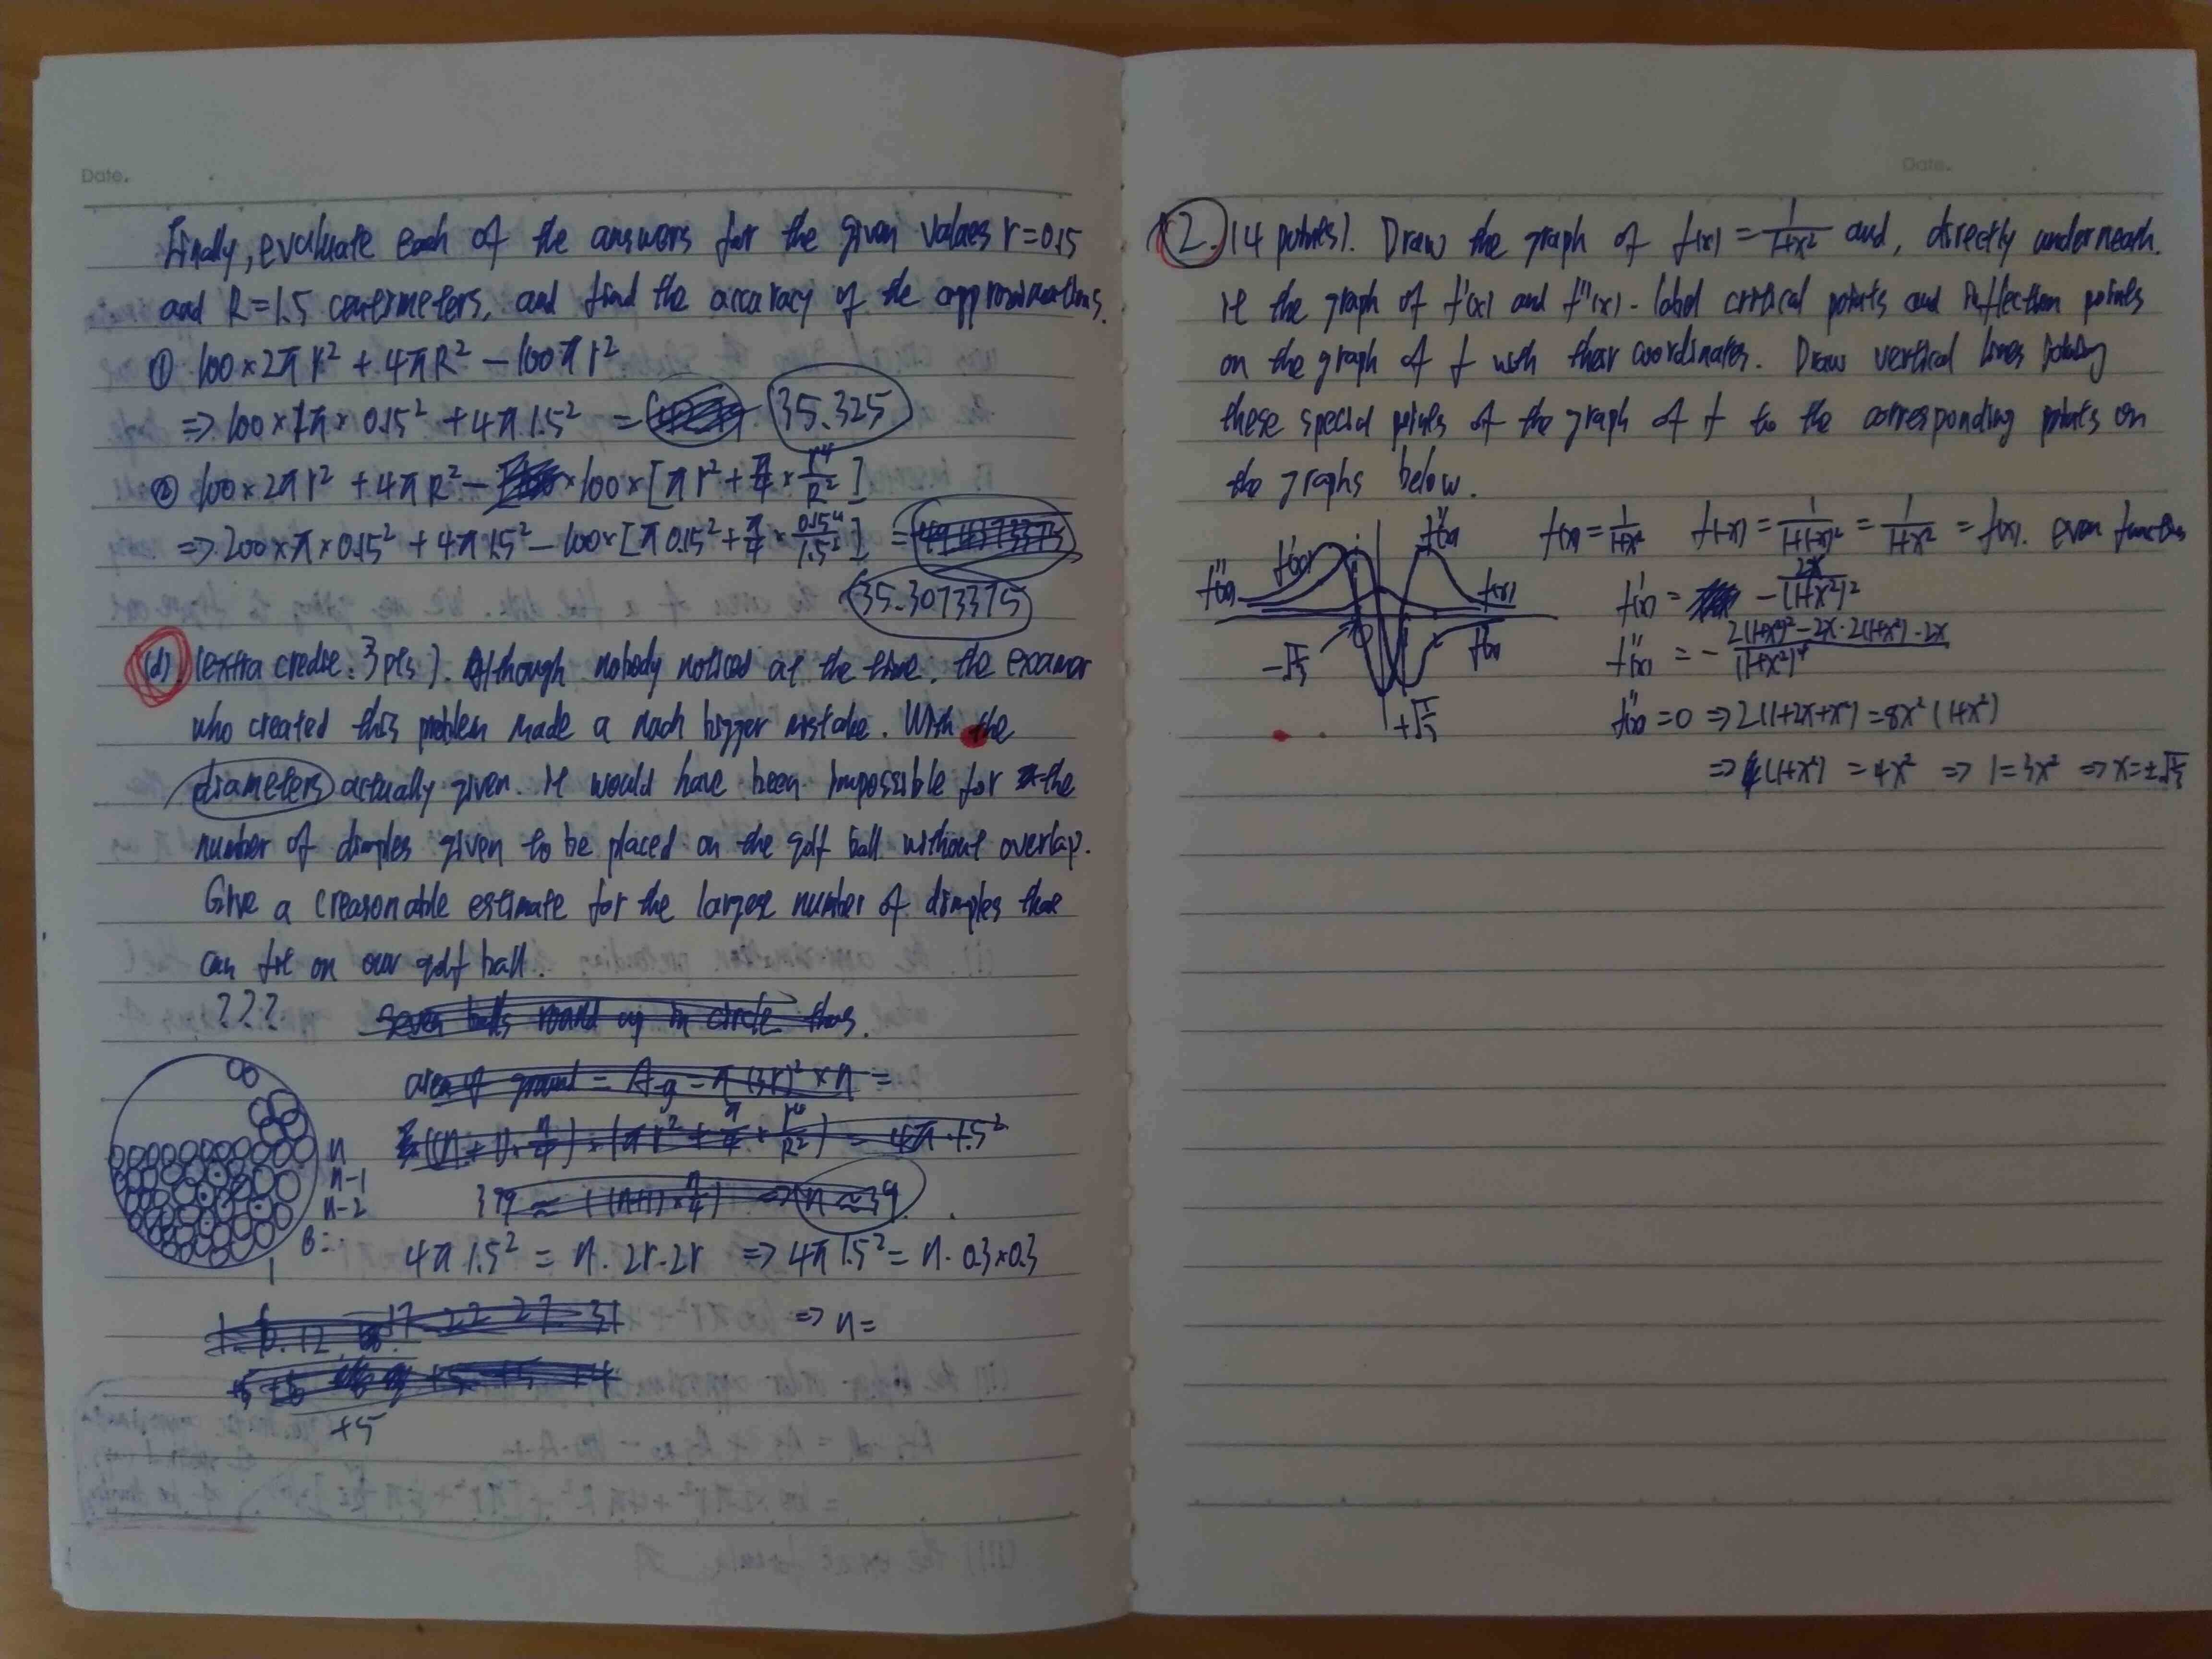 Date.
Finally, evaluate each of the answers for the given values r=0.15
and R=1.5 centermeters, and find the accuracy of the approximations.
① 100×2πr² + 4πR² − 100πr²
⇒ 100×π×0.15² + 4π1.5² = 35.325
② 100×2πr² + 4πR² − ×100×[πr² + π/4 × r⁴/R²]
⇒ 200×π×0.15² + 4π1.5² − 100×[π0.15² + π/4 × 0.15⁴/1.5²] =
35.3073375
(d) (extra credie: 3 pts). Although nobody noticed at the time, the examor
who created this problem made a much bigger mistake. With the
diameters actually given. it would have been impossible for the
number of dimples given to be placed on the golf ball without overlap.
Give a creasonable estimate for the largest number of dimples that
can fit on our golf ball.
???
Seven balls round up in circle thus.
area of ground = A-g = π(3r)²×n =
n
n-1
n-2
399 ≈ ((n+1)×n/4) ⇒ n≈39
4π1.5² = n·2r·2r ⇒ 4π1.5² = n·0.3×0.3
1
1 6. 12 17 22 27 31
⇒ n=
+5
Date.
2. (4 points). Draw the graph of f(x) = 1/(1+x²) and, directly underneath.
it the graph of f'(x) and f''(x) - label critical points and inflection points
on the graph of f with their coordinates. Draw vertical lines joining
these special points of the graph of f to the corresponding points on
the graphs below.
f(x) = 1/(1+x²) f(-x) = 1/(1+(-x)²) = 1/(1+x²) = f(x). even function
f''(x) f'(x) f''(x) f(x)
f'(x) = − 2x/(1+x²)²
−√1/3 f'(x)
f''(x) = − (2(1+x²)² − 2x·2(1+x²)·2x)/(1+x²)⁴
+√1/3
f''(x) = 0 ⇒ 2(1+2x+x⁴) = 8x²(1+x²)
⇒ (1+x²) = 4x² ⇒ 1=3x² ⇒ x=±√1/3